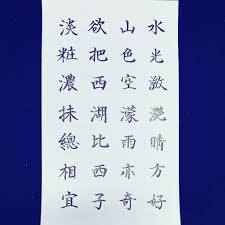 水光瀲灔晴方好
山色空濛雨亦奇
欲把西湖比西子
淡粧濃抹總相宜